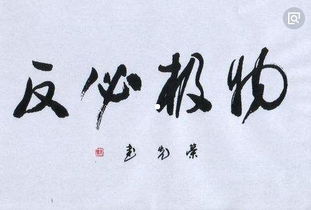 物极必反